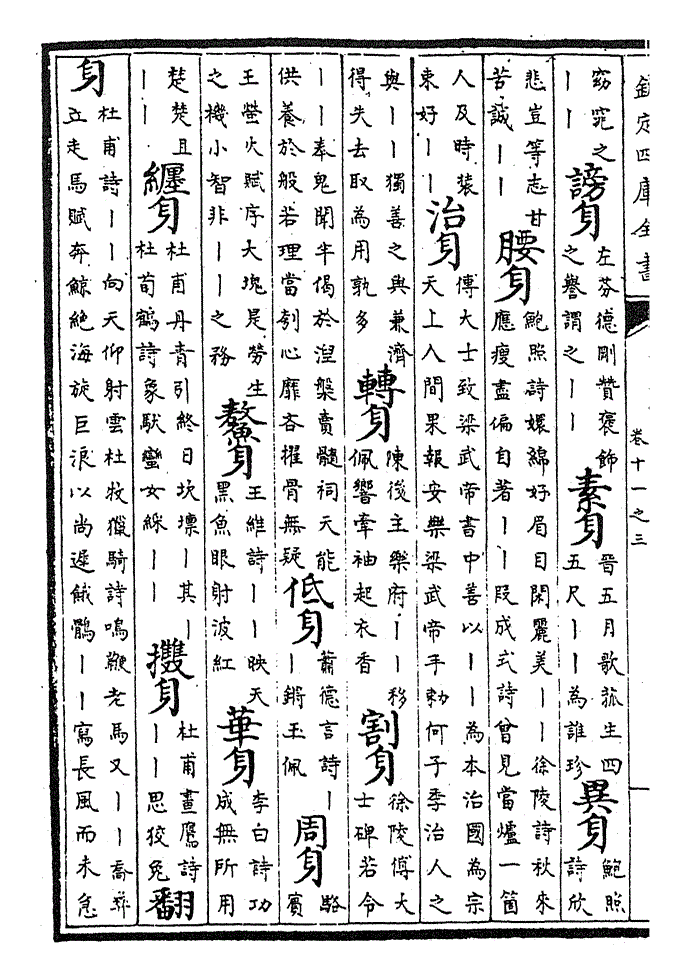 欽定四庫全書
卷十一之三
窈窕之
丨丨
謗身
左芬德剛贊褒飾
之譽謂之丨丨
素身
晉五月歌菰生四
五尺丨丨為誰珍
異身
鮑照
詩欣
悲豈等志甘
苦誠丨丨
腰身
鮑照詩嬛綿好眉目閑麗美丨丨徐陵詩秋來
應瘦盡偏自著丨丨段成式詩曾見當爐一箇
人及時裝
束好丨丨
治身
傅大士致梁武帝書中善以丨丨為本治國為宗
天上人間果報安樂梁武帝手勅何子季治人之
與丨丨獨善之與兼濟
得失去取為用孰多
轉身
陳後主樂府丨丨移
佩響牽袖起衣香
割身
徐陵傅大
士碑若令
丨丨奉鬼聞半偈於涅槃賣髓祠天能
供養於般若理當刳心靡吝擢骨無疑
低身
蕭德言詩丨
丨鏘玉佩
周身
駱
賓
王螢火賦序大塊是勞生
之機小智非丨丨之務
鼇身
王維詩丨丨映天
黑魚眼射波紅
華身
李白詩功
成無所用
楚楚且
丨丨
纏身
杜甫丹青引終日坎壈丨其丨
杜荀鶴詩象馱蠻女綵丨丨
㩳身
杜甫畫鷹詩
丨丨思狡兔
翻
身
杜甫詩丨丨向天仰射雲杜牧獵騎詩鳴鞭老馬又丨丨喬彝
立走馬賦奔鯨絕海旋巨浪以尚遲餓鶻丨丨寫長風而未急